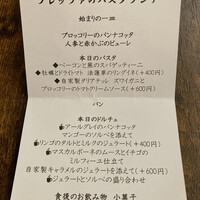 プレッツァのパスタランチ
始まりの一皿
ブロッコリーのパンナコッタ
人参と赤かぶのピューレ
本日のパスタ
◆ベーコンと蕪のスパゲッティーニ
◆牡蠣とドライトマト 法蓮草のリングイネ(+400円)
◆自家製タリアテッレ ズワイガニと
ブロッコリーのトマトクリームソース(+600円)
パン
本日のドルチェ
アールグレイのパンナコッタ
マンゴーのソルベを添えて
リンゴのタルトとミルクのジェラート(+400円)
マスカルポーネのムースとイチゴの
ミルフィーユ仕立て
自家製キャラメルのジェラートを添えて(+600円)
ジェラートとソルベの盛り合わせ
食後のお飲み物 小菓子